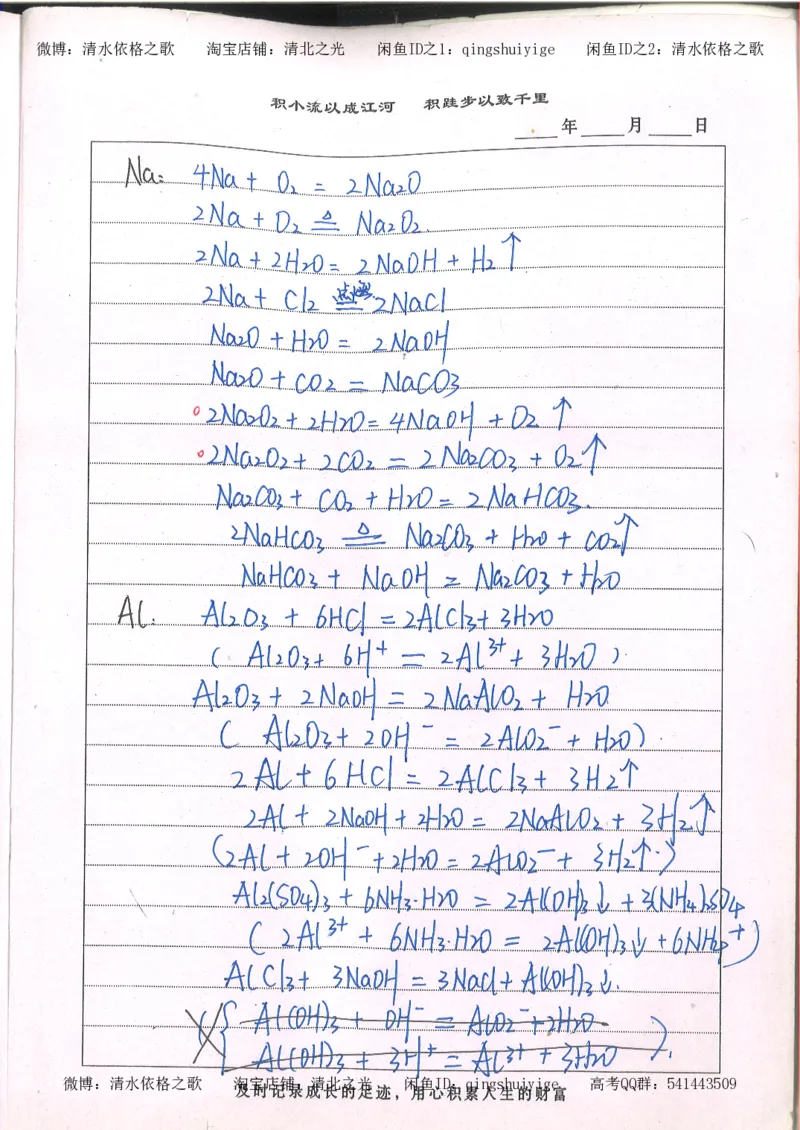 微博：清水依格之歌 淘宝店铺：清北之光 闲鱼ID之1：qingshuiyige 闲鱼ID之2：清水依格之歌
积小流以成江河 积跬步以致千里
____年____月____日
Na: 4Na + O₂ = 2Na₂O
2Na + O₂ ≜ Na₂O₂.
2Na + 2H₂O = 2NaOH + H₂↑
2Na + Cl₂ 点燃= 2NaCl
Na₂O + H₂O = 2NaOH
Na₂O + CO₂ = NaCO₃
2Na₂O₂ + 2H₂O = 4NaOH + O₂↑
2Na₂O₂ + 2CO₂ = 2Na₂CO₃ + O₂↑
Na₂CO₃ + CO₂ + H₂O = 2NaHCO₃.
2NaHCO₃ ≜ Na₂CO₃ + H₂O + CO₂↑
NaHCO₃ + NaOH = Na₂CO₃ + H₂O
Al: Al₂O₃ + 6HCl = 2AlCl₃ + 3H₂O
( Al₂O₃ + 6H⁺ = 2Al³⁺ + 3H₂O ).
Al₂O₃ + 2NaOH = 2NaAlO₂ + H₂O
( Al₂O₃ + 2OH⁻ = 2AlO₂⁻ + H₂O ).
2Al + 6HCl = 2AlCl₃ + 3H₂↑
2Al + 2NaOH + 2H₂O = 2NaAlO₂ + 3H₂↑
(2Al + 2OH⁻ + 2H₂O = 2AlO₂⁻ + 3H₂↑.)
Al₂(SO₄)₃ + 6NH₃·H₂O = 2Al(OH)₃↓ + 3(NH₄)₂SO₄
( 2Al³⁺ + 6NH₃·H₂O = 2Al(OH)₃↓ + 6NH₄⁺ )
AlCl₃ + 3NaOH = 3NaCl + Al(OH)₃↓.
({ Al(OH)₃ + OH⁻ = AlO₂⁻ + 2H₂O
Al(OH)₃ + 3H⁺ = Al³⁺ + 3H₂O ).
微博：清水依格之歌 淘宝店铺：清北之光 闲鱼ID：qingshuiyige 高考QQ群：541443509
及时记录成长的足迹，用心积累人生的财富